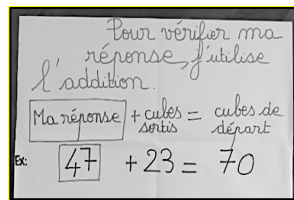 Pour vérifier ma
réponse, j'utilise
l'addition.
Ma réponse + cubes sortis = cubes de départ
Ex: 47 + 23 = 70